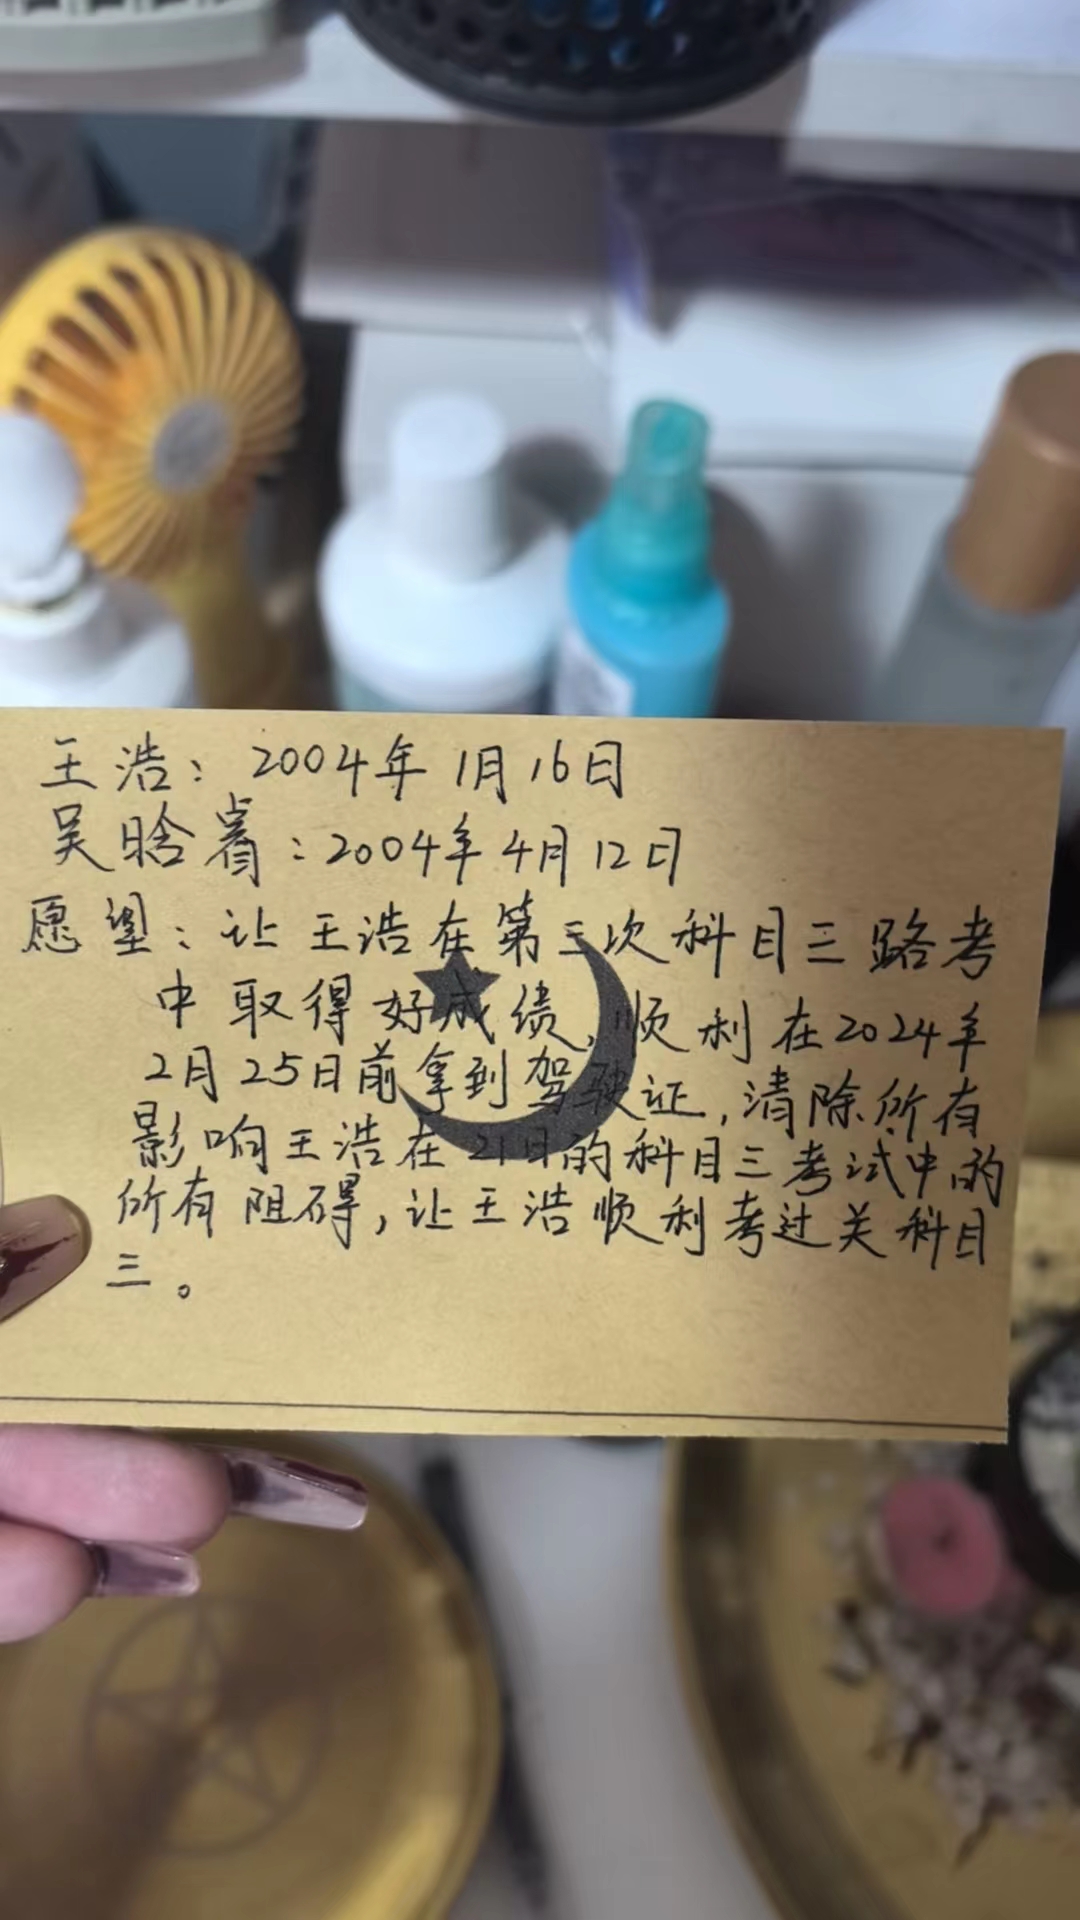 王浩：2004年1月16日
吴晗睿：2004年4月12日
愿望：让王浩在第三次科目三路考
中取得好成绩，顺利在2024年
2月25日前拿到驾驶证，清除所有
影响王浩在21日的科目三考试中的
所有阻碍，让王浩顺利考过关科目
三。